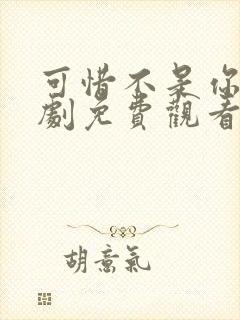 可惜不是你
劇免費觀看
胡意氣